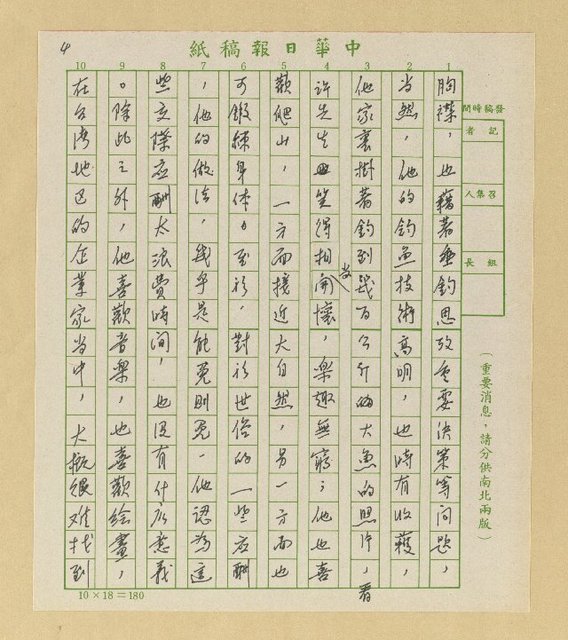 4
中華日報稿紙
1 2 3 4 5 6 7 8 9 10
胸襟，也藉著垂釣思攷重要決策等問題，
當然，他的釣魚技術高明，也時有收穫，
他家裏掛著釣到幾百公斤的大魚的照片，看
許先生笑得相當開懷，樂趣無窮；他也喜
歡爬山，一方面接近大自然，另一方面也
可鍛練身體。至於，對於世俗的一些應酬
，他的做法，幾乎是能免則免，他認為這
些交際應酬太浪費時間，也沒有什麼意義
。除此之外，他喜歡音樂，也喜歡繪畫，
在台灣地區的企業家當中，大概很難找到
發稿時間
記者
召集人
組長
（重要消息，請分供南北兩版）
10×18＝180